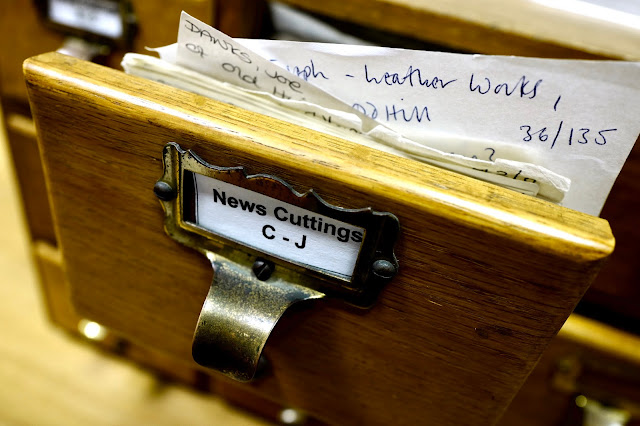 DANKS, Joe
of old Hill
aph - Leather Works,
Old Hill
36/135
News Cuttings
C - J